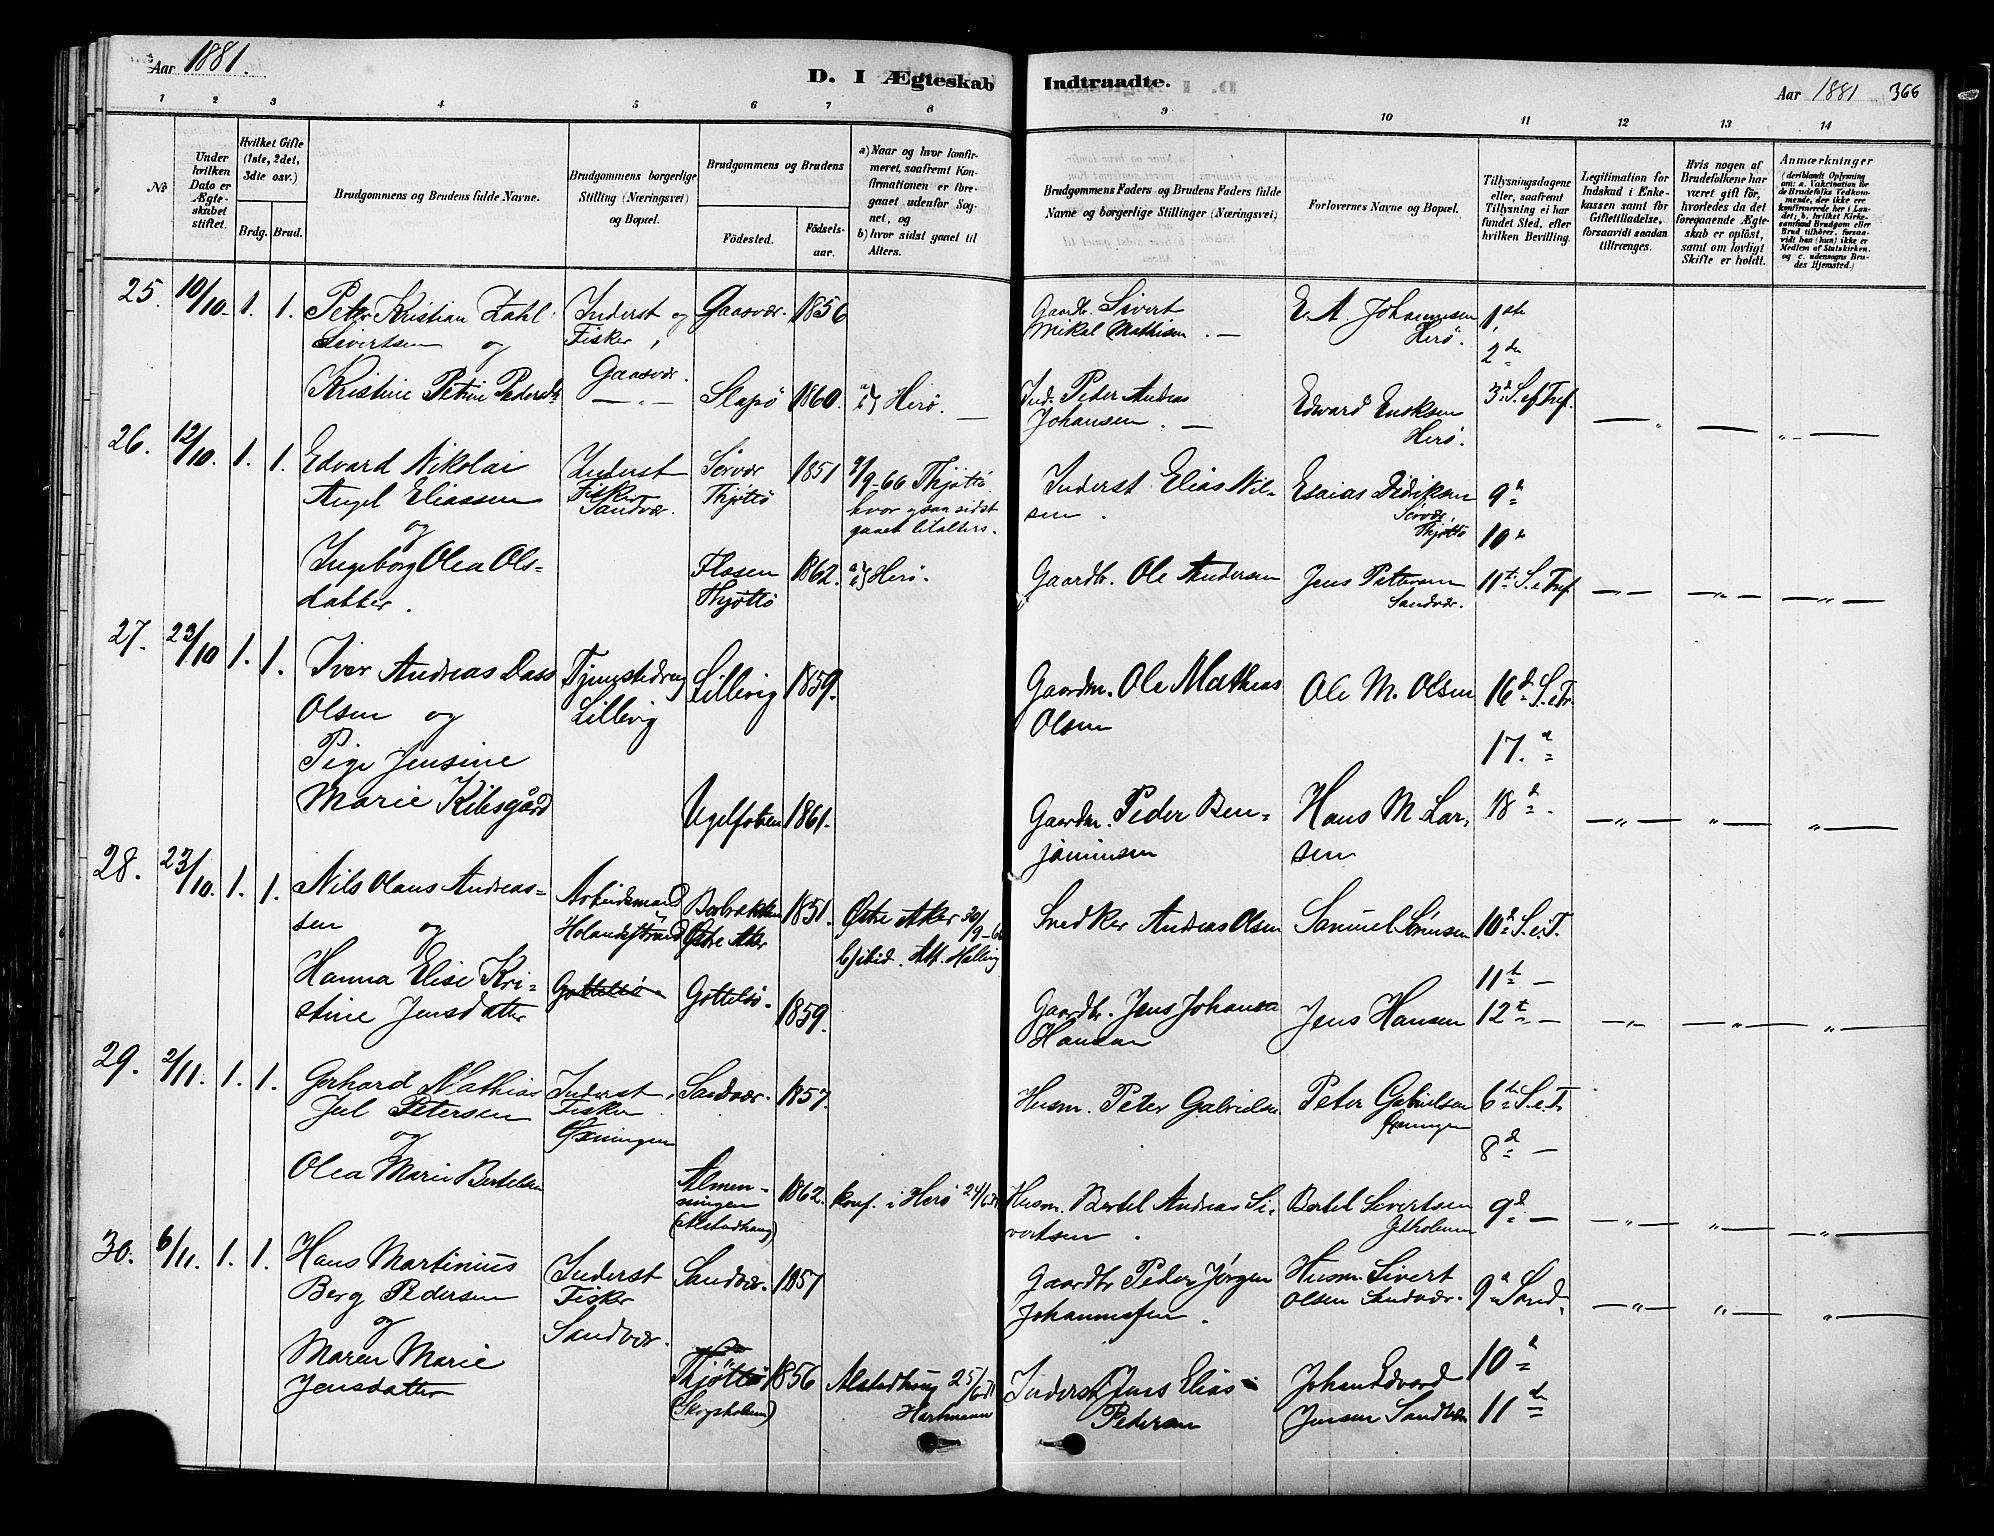 Aar 1881.
D. I Ægteskab
Indtraadte.
Aar 1881 366
1 2 3 4 5 6 7 8 9 10 11 12 13 14
No
Under
hvilken
Dato er
Ægte-
skabet
stiftet.
Hvilket Gifte
(1ste, 2det,
3die osv.)
Brdg. Brud.
Brudgommens og Brudens fulde Navne.
Brudgommens borgerlige
Stilling (Næringsvei)
og Bopæl.
Brudgommens og Brudens
Fødested.
Fødsels-
aar.
a) Naar og hvor konfir-
meret, saafremt Kon-
firmationen er fore-
gaaet udenfor Sog-
net, og
b) hvor sidst gaaet til
Alters.
Brudgommens Faders og Brudens Faders fulde
Navne og borgerlige Stillinger (Næringsvei)
Forlovernes Navne og Bopæl.
Tillysningsdagene
eller, saafremt
Tillysning ei har
fundet Sted, efter
hvilken Bevilling.
Legitimation for
Indskud i Enke-
kassen samt for
Giftetilladelse,
forsaavidt saadan
tiltrænges.
Hvis nogen af
Brudefolkene har
været gift før,
hvorledes da det
foregaaende Ægte-
skab er opløst,
samt om lovligt
Skifte er holdt.
Anmærkninger
(deriblandt Oplysning
om: a. Vakcination for
de Brudefolks Vedkom-
mende, der ikke ere
konfirmerede her i Lan-
det; b. hvilket Kirke-
samfund Brudgom eller
Brud tilhører, forsaa-
vidt han (hun) ikke er
Medlem af Statskirken,
og c. udensogns Bru-
des Hjemsted.)
25. 10/10. 1. 1. Peter Kristian Zahl
Sivertsen og
Inderst og
Fisker,
Gaasvær.
Gaasvær. 1856
Gaardb. Sivert
Mikal Mathisen. —
E. A. Johannesen
Herö.
1ste
2den
Kristine Petrine Pedersdt
— „ —
Slapö 1860.
a) b) Herö. —
Ind. Peder Andreas
Johansen. —
Edvard Enoksen
Herö.
3d. S. ef Tref.
26. 12/10. 1. 1. Edvard Nikolai
Angel Eliassen
og
Inderst
Fisker
Sandvær.
Servær
Thjöttö
1851
9/9-66 Thjöttö
hvor ogsaa sidst
gaaet til Alters.
Inderst Elias Nil-
sen.
Esaias Didriksen
Servær,
Thjöttö
9d
10d
Ingeborg Olea Ols-
datter.
Flasen
Thjöttö
1862.
a) b) Herö.
Gaardb. Ole Andersen
Jens Pettersen
Sandvær.
11te S. e Tref
27. 23/10 1. 1. Iver Andreas Dass
Olsen og
Tjenestedreng
Lillevig
Lillevig 1859.
Gaardm. Ole Mathias
Olsen
Ole M. Olsen
16d S. e Tr.
17. d
Pige Jensine
Marie Kilsgård
Ugelfoten 1861.
Gaardm. Peder Ben-
jaminsen
Hans M. Lar-
sen
18d.
28. 23/10. 1. 1. Nils Olaus Andreas-
sen og
Arbeidsmand
Holandsstrand
Østre Aker
1851.
Østre Aker 30/9-66
b) ibid. Att. Halling
Snedker Andreas Olsen
Samuel Sörensen
10d S. e. T.
11t —
Hanna Elise Kri-
stine Jensdatter
Gottelsö.
Gottelsö. 1859.
Gaardb. Jens Johansa
Hansen
Jens Hansen
12t —
29. 2/11. 1. 1. Gerhard Mathias
Juel Petersen
og
Inderst,
Fisker
Øxningen
Sandvær. 1857.
Husm. Peter Gabrielsen
Peter Gabrielsen
Øxningen
6te S. e T.
8d —
Olea Marie Bertelsen
Almen-
ningen
(Alstadhaug)
1862.
konf. i Herö 24/6
Husm. Bertel Andreas Si-
vertsen.
Bertel Sivertsen
9d —
30. 6/11. 1. 1. Hans Martinius
Berg Pedersen
og
Inderst
Fisker
Sandvær.
Sandvær. 1857
Gaardbr Peder Jörgen
Johannessen.
Husm. Sivert
Olsen Sandvær.
9d Sand.
Maren Marie
Jensdatter
Thjöttö
1856
Alstadhaug 25/6
Hartmann
Inderst Jens Elias
Pedersen
Johan Edvard
Jensen Sandvær
10d
11de